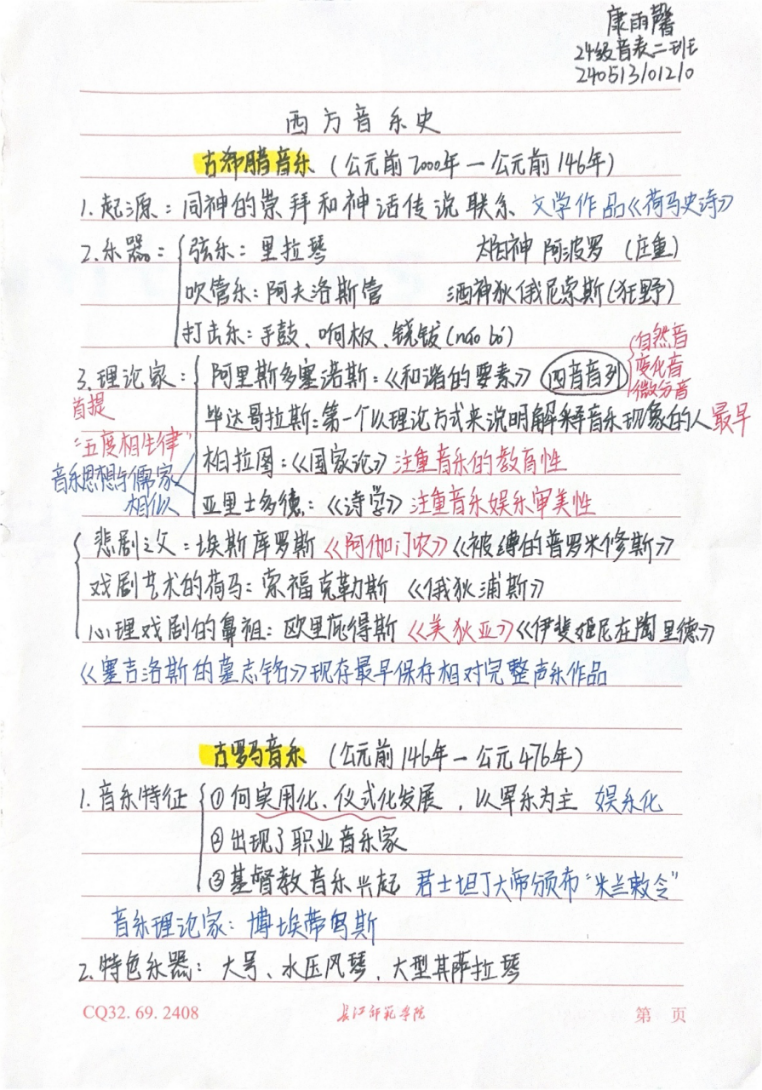 康雨馨
24级音表二班
240513101210
西方音乐史
古希腊音乐（公元前2000年—公元前146年）
1.起源：同神的崇拜和神话传说联系 文学作品《荷马史诗》
2.乐器：弦乐：里拉琴 太阳神 阿波罗（庄重）
吹管乐：阿夫洛斯管 酒神狄俄尼索斯（狂野）
打击乐：手鼓、响板、铙钹（náo bó）
自然音
变化音
微分音
3.理论家：阿里斯多塞诺斯：《和谐的要素》 四音音列
首提
“五度相生律” 毕达哥拉斯：第一个以理论方式来说明解释音乐现象的人 最早
音乐思想与儒家相似 柏拉图：《国家论》注重音乐的教育性
亚里士多德：《诗学》注重音乐娱乐审美性
悲剧之父：埃斯库罗斯《阿伽门农》《被缚的普罗米修斯》
戏剧艺术的荷马：索福克勒斯《俄狄浦斯》
心理戏剧的鼻祖：欧里庇得斯《美狄亚》《伊斐姬尼在陶里德》
《塞吉洛斯的墓志铭》现存最早保存相对完整声乐作品
古罗马音乐（公元前146年—公元476年）
1.音乐特征 ①向实用化、仪式化发展，以军乐为主 娱乐化
②出现了职业音乐家
③基督教音乐兴起 君士坦丁大帝颁布“米兰敕令”
音乐理论家：博埃蒂乌斯
2.特色乐器：大号、水压风琴、大型其萨拉琴
CQ32.69.2408 长江师范学院 第 页